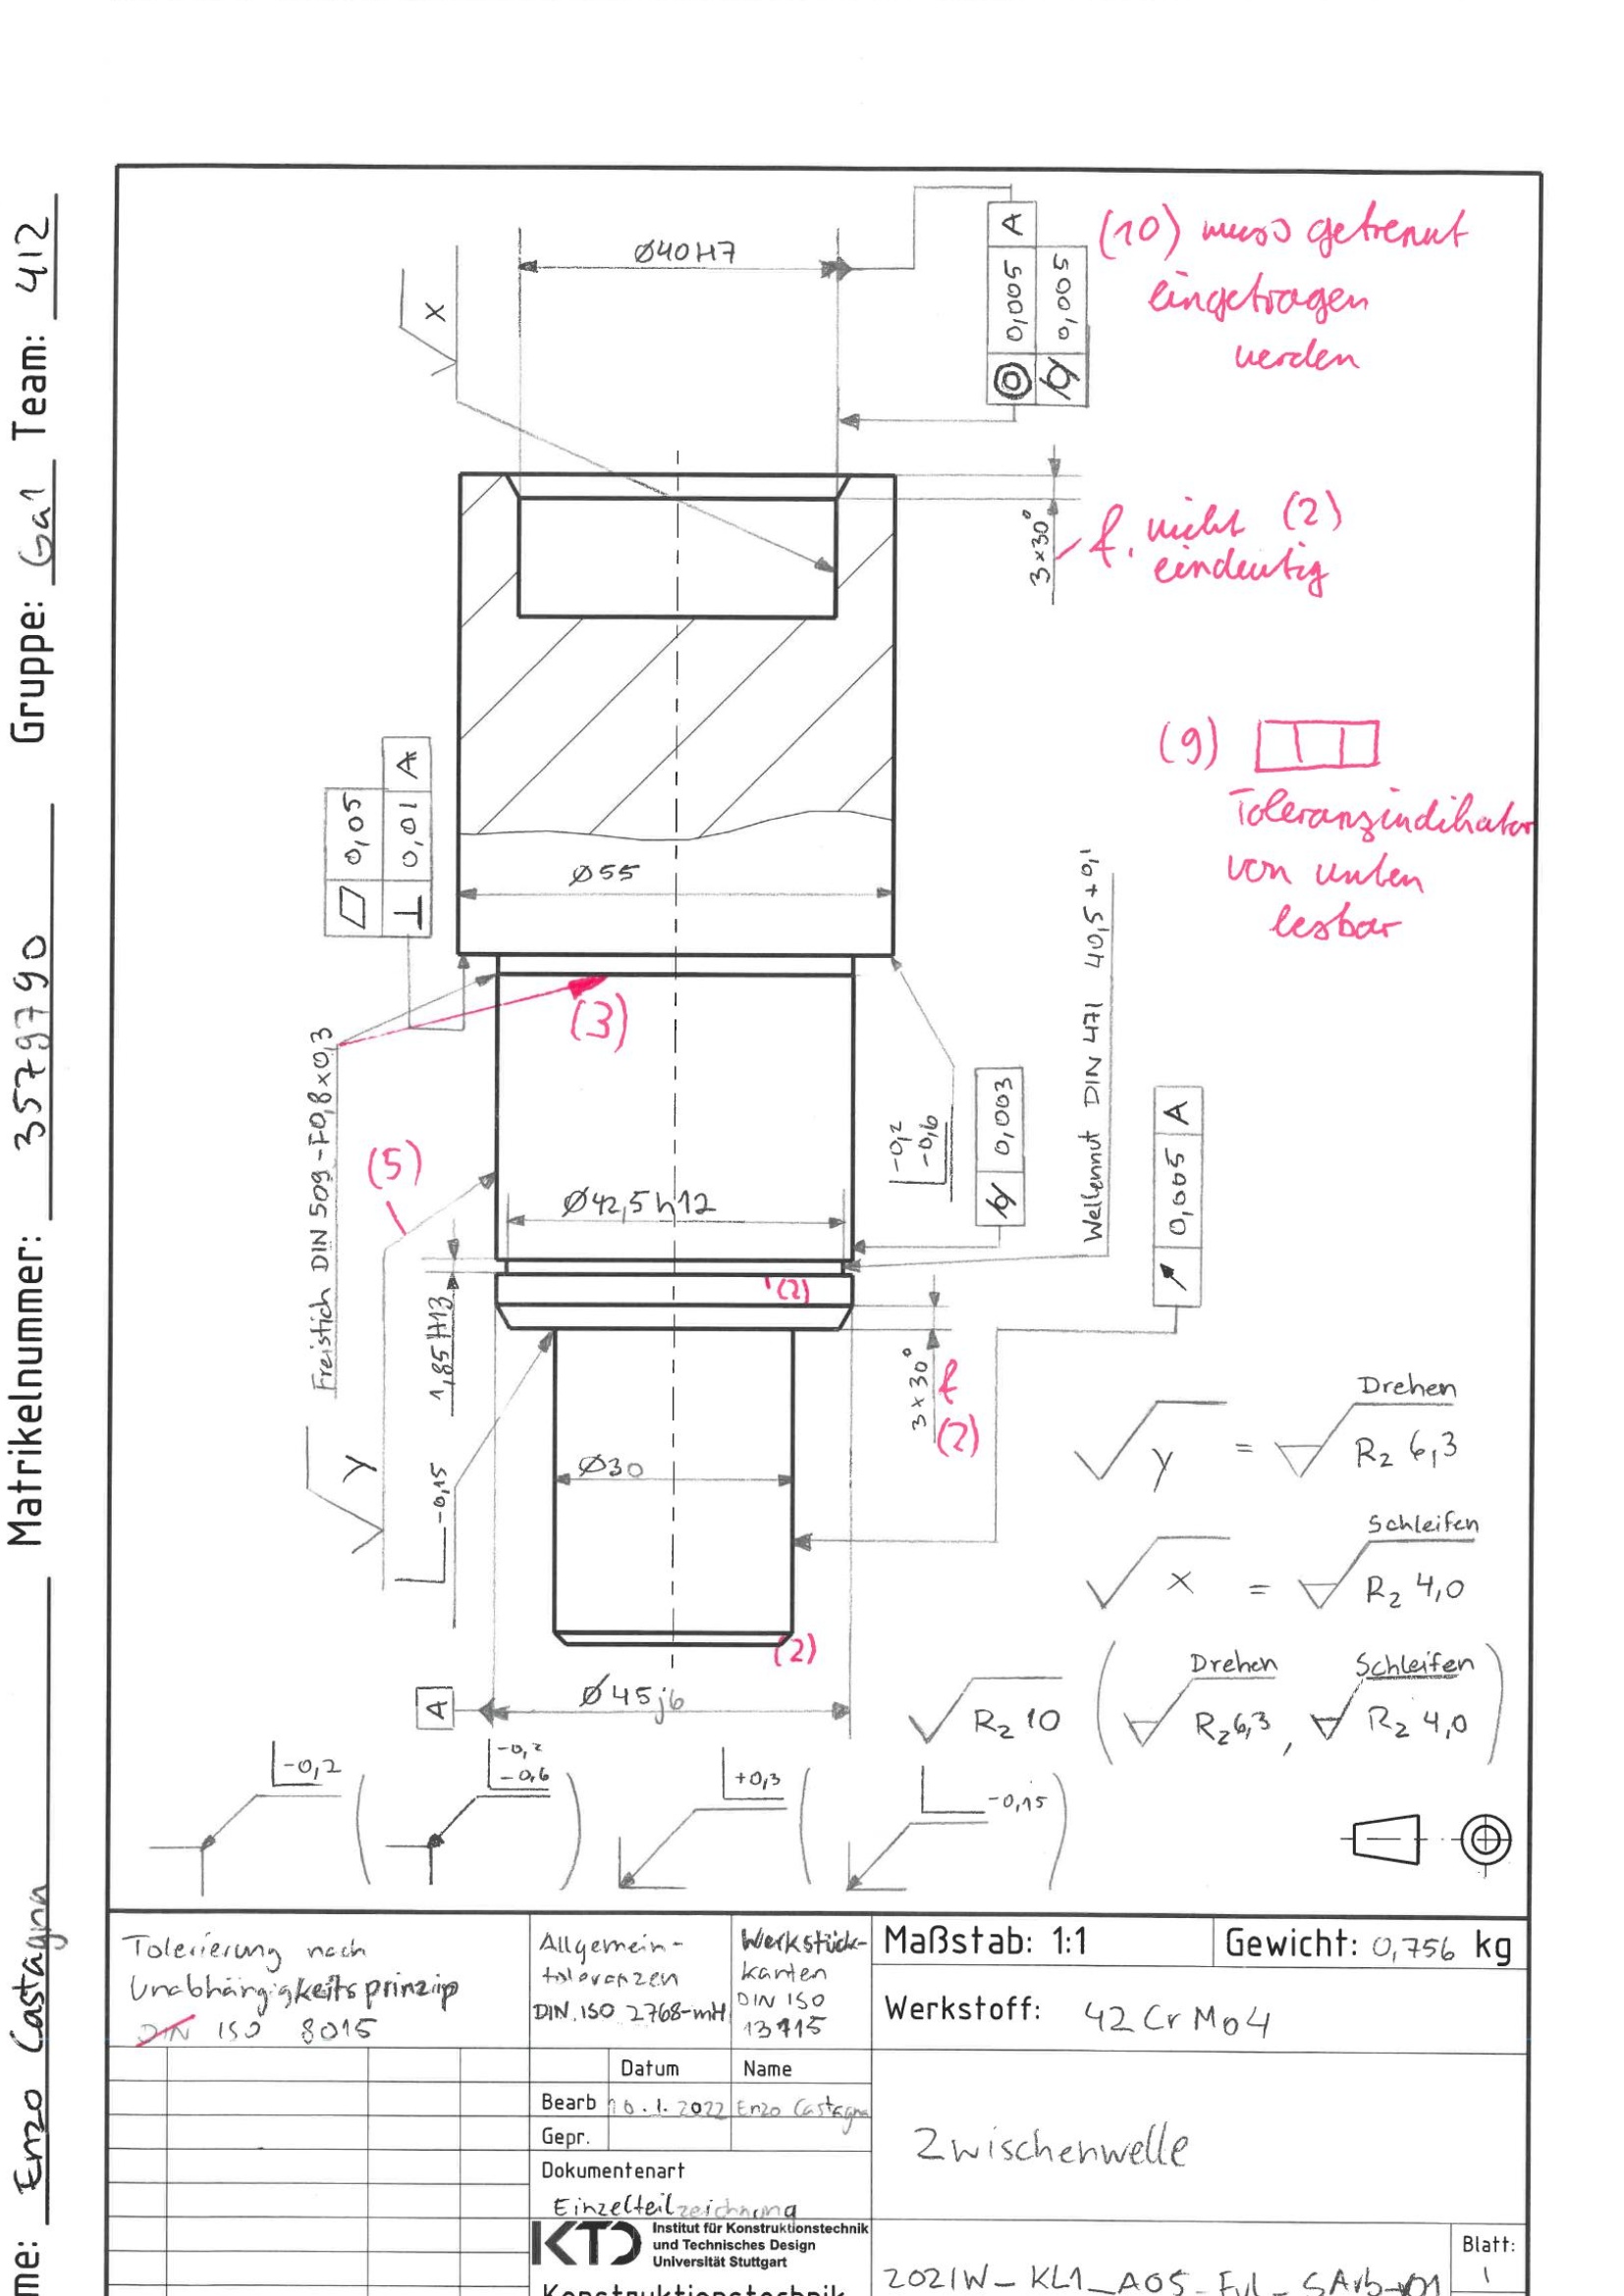 Gruppe: Ga1 Team: 412
Matrikelnummer: 3579790
me: Enzo Castagna
Ø40H7
x
◎ 0,005 A
⌭ 0,005
(10) muss getrennt
eingetragen
werden
3×30°
f. nicht (2)
eindeutig
(9)
Toleranzindikator
von unten
lesbar
⏥ 0,05
⊥ 0,01 A
Ø55
(3)
Freistich DIN 509-F0,8x0,3
(5)
-0,2
-0,6
⌭ 0,003
Wellennut DIN 471 40,5 +0,1
↗ 0,005 A
Ø42,5h12
(2)
1,85 H13
3×30°
f
(2)
y
-0,15
Ø30
(2)
A
Ø45j6
y = Drehen
Rz 6,3
x = Schleifen
Rz 4,0
Rz 10 ( Drehen Rz 6,3 , Schleifen Rz 4,0 )
-0,2 ( -0,2 -0,6 ) +0,3 ( -0,15 )
Tolerierung nach
Unabhängigkeitsprinzip
DIN ISO 8015
Allgemein-
toleranzen
DIN ISO 2768-mH
Werkstück-
kanten
DIN ISO
13715
Maßstab: 1:1
Gewicht: 0,756 kg
Werkstoff: 42CrMo4
Datum Name
Bearb 10.1.2022 Enzo Castagna
Gepr.
Dokumentenart
Einzelteilzeichnung
Zwischenwelle
KTD Institut für Konstruktionstechnik
und Technisches Design
Universität Stuttgart
Konstruktionstechnik
Blatt:
1
2021W_KL1_A05_Ful_SArb_v01